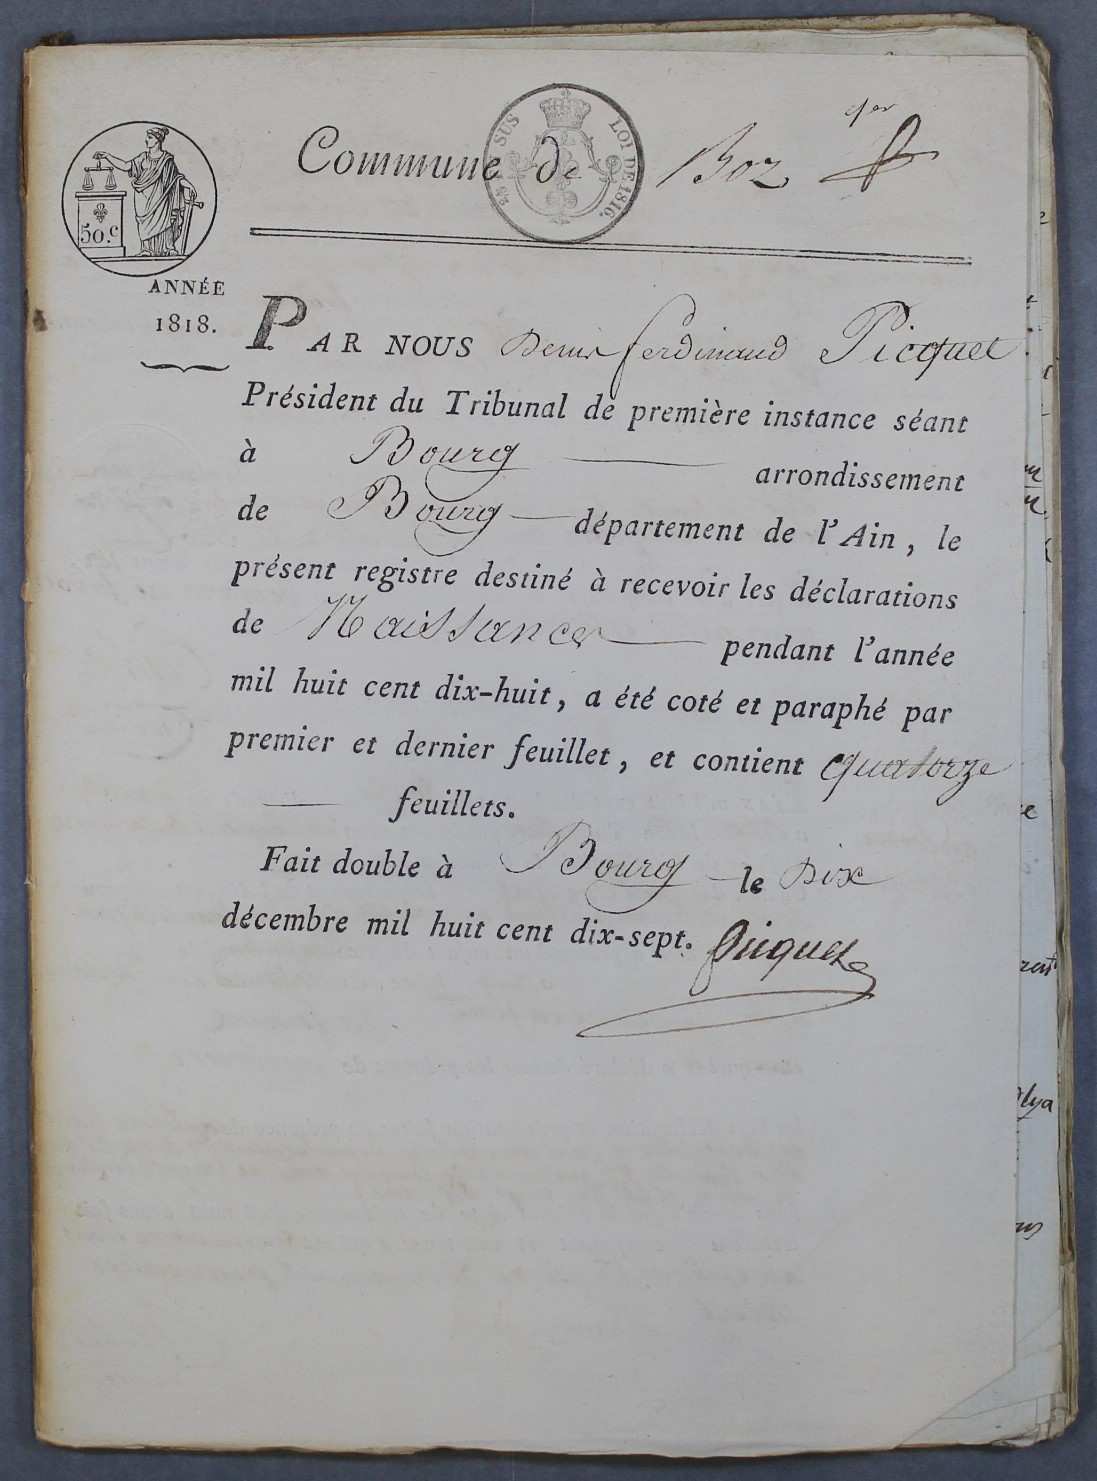 1er
Commune de Boz
SUS
LOI DE 1816.
50.c
ANNÉE
1818.
PAR NOUS Denis ferdinand Picquet
Président du Tribunal de première instance séant
à Bourg arrondissement
de Bourg département de l'Ain, le
présent registre destiné à recevoir les déclarations
de Naissances pendant l'année
mil huit cent dix-huit, a été coté et paraphé par
premier et dernier feuillet, et contient quatorze
feuillets.
Fait double à Bourg le Dix
décembre mil huit cent dix-sept. Picquet